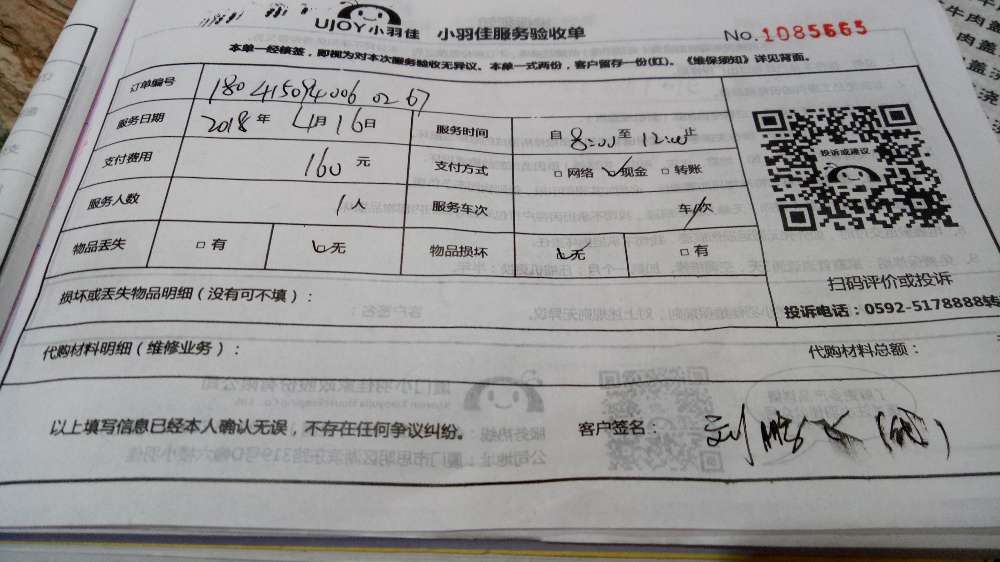 UJOY小羽佳 小羽佳服务验收单 No.1085665
本单一经核签，即视为对本次服务验收无异议。本单一式两份，客户留存一份(红)。《维保须知》详见背面。
订单编号 18041509400602 67
服务日期 2018年 4月16日 服务时间 自8:00至12:00止
支付费用 160元 支付方式 □网络 ☑现金 □转账
服务人数 1人 服务车次 车/次
物品丢失 □有 ☑无 物品损坏 ☑无 □有
投诉或建议
扫码评价或投诉
投诉电话：0592-5178888转
损坏或丢失物品明细（没有可不填）：
代购材料明细（维修业务）： 代购材料总额：
以上填写信息已经本人确认无误，不存在任何争议纠纷。 客户签名：